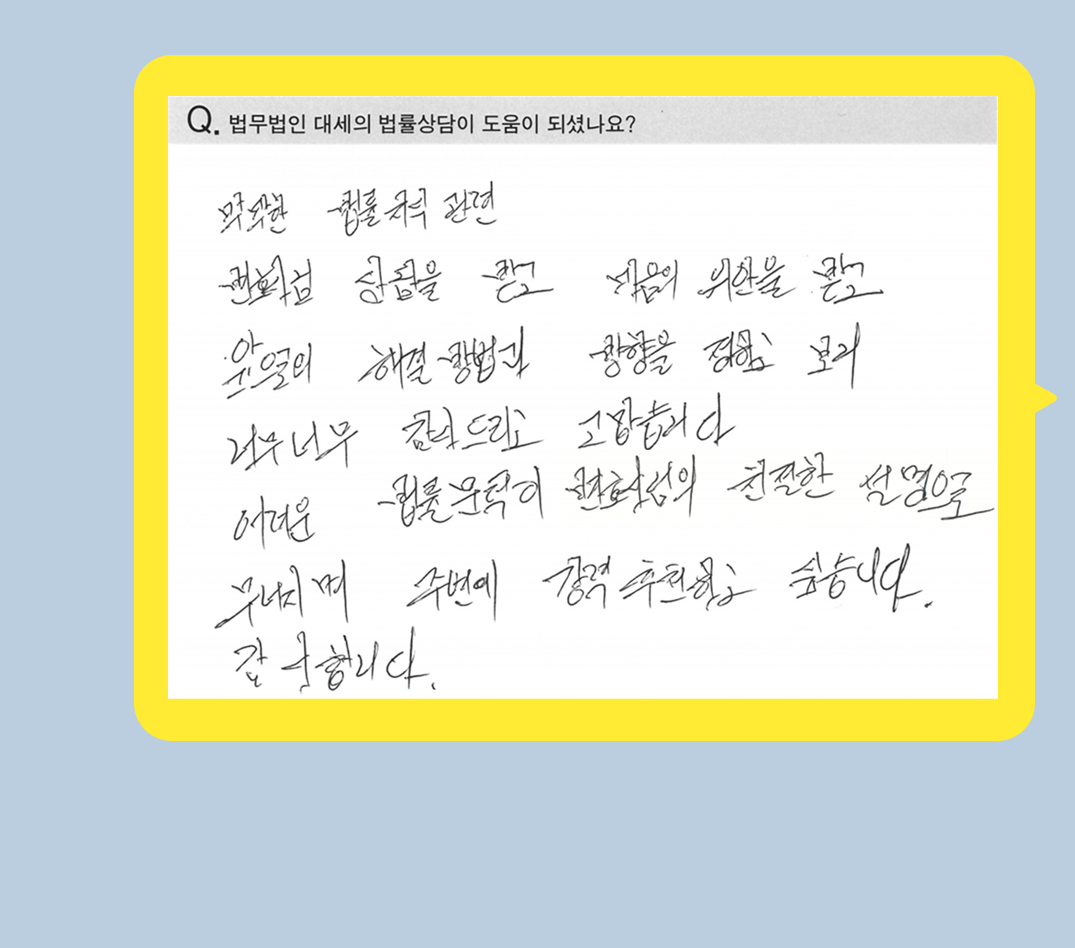 Q. 법무법인 대세의 법률상담이 도움이 되셨나요?
막막한 법률지식 관련
변호사님 상담을 받고 마음의 위안을 받고
앞으로의 해결방법과 방향을 정하고 보니
너무너무 감사드리고 고맙습니다
어려운 법률문턱이 변호사님의 친절한 설명으로
무너지며 주변에 강력추천하고 싶습니다.
감사합니다.